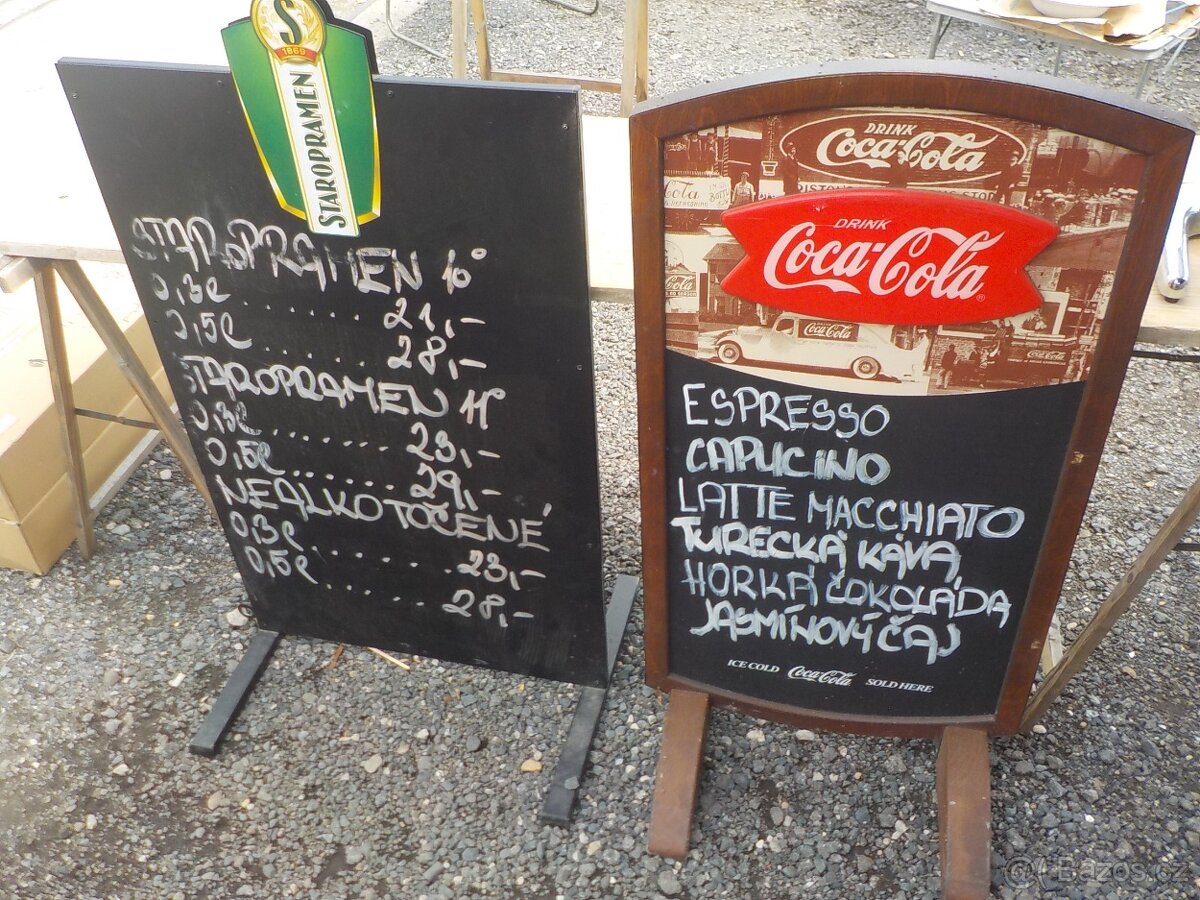 S
1869
STAROPRAMEN
STAROPRAMEN 10°
0,3l ........ 21,-
0,5l ........ 28,-
STAROPRAMEN 11°
0,3l ........ 23,-
0,5l ........ 29,-
NEALKO TOČENÉ
0,3l ........ 23,-
0,5l ........ 28,-
DRINK
Coca-Cola
DRINK
Coca-Cola
Coca-Cola
ESPRESSO
CAPUCINO
LATTE MACCHIATO
TURECKÁ KÁVA
HORKÁ ČOKOLÁDA
JASMÍNOVÝ ČAJ
ICE COLD Coca-Cola SOLD HERE
Bazos.cz